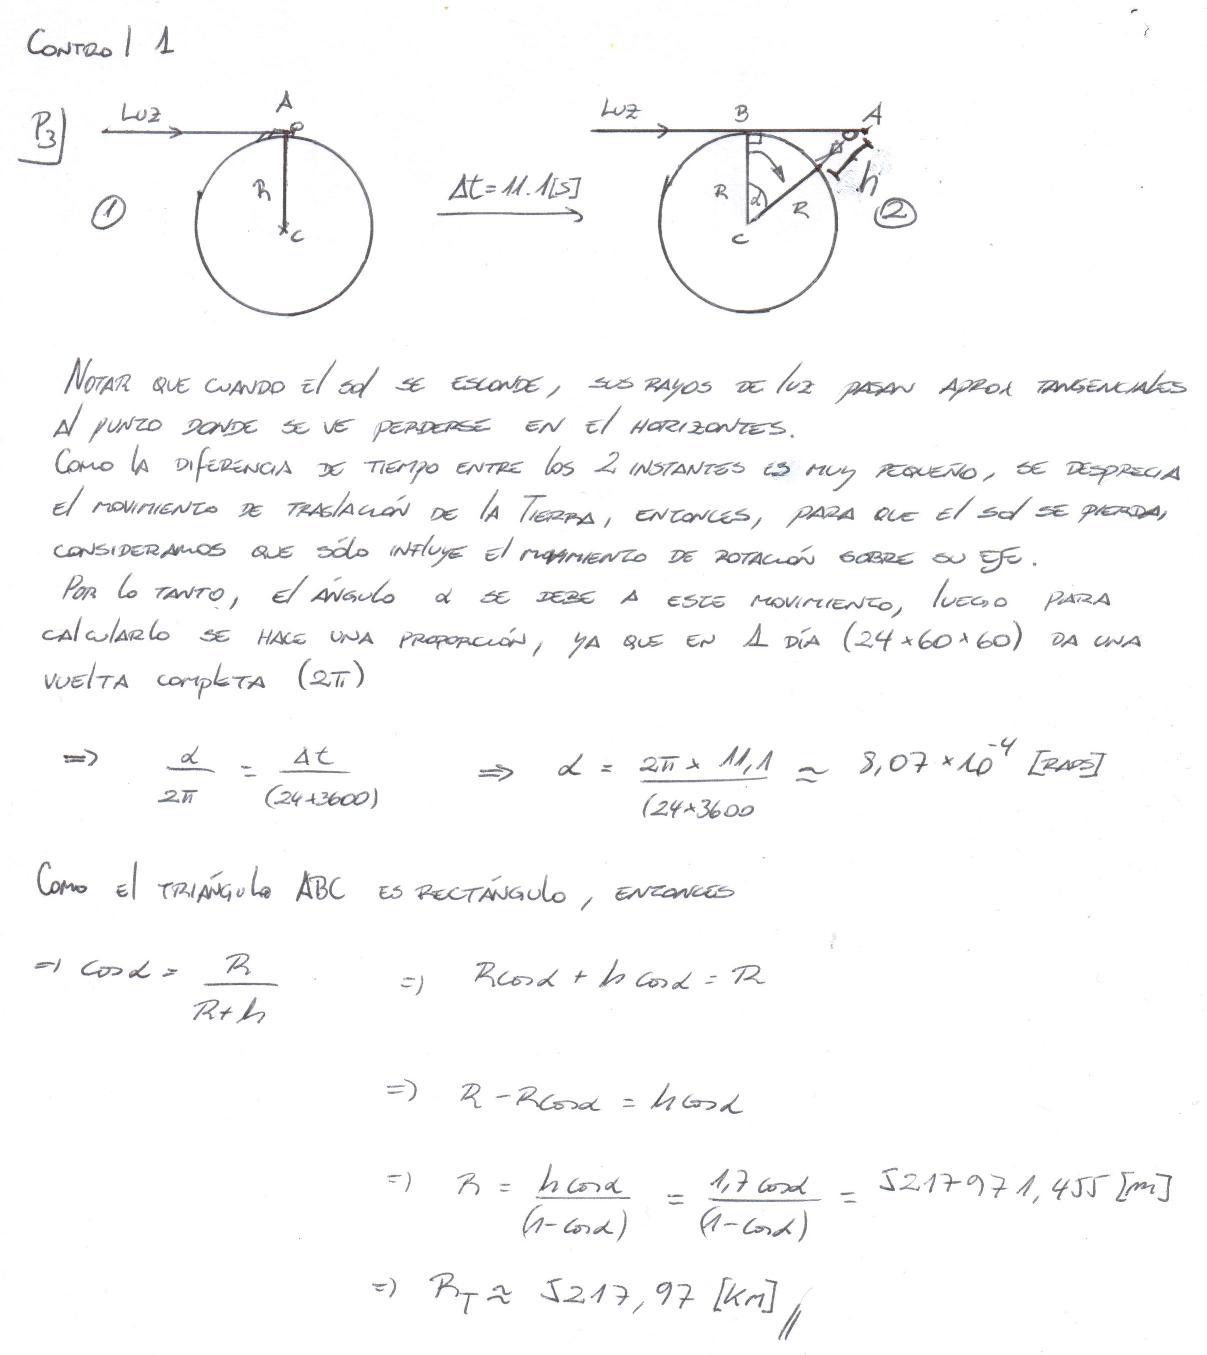 CONTROl 1
P3]
LUZ
A
R
C
①
Δt = 11.1 [s]
LUZ
B
A
R
α
R
h
C
②
NOTAR QUE CUANDO El sol SE ESCONDE, SUS RAYOS DE luz PASAN APROX TANGENCIALES
Al PUNTO DONDE SE VE PERDERSE EN El HORIZONTES.
COMO lA DIFERENCIA DE TIEMPO ENTRE los 2 INSTANTES ES MUY PEQUEÑO, SE DESPRECIA
El MOVIMIENTO DE TRASlACIÓN DE lA TIERRA, ENTONCES, PARA QUE El Sol SE PIERDA,
CONSIDERAMOS QUE SÓlO INFlUYE El MOVIMIENTO DE ROTACIÓN SOBRE SU EJE.
POR lo TANTO, El ÁNGULO α SE DEBE A ESTE MOVIMIENTO, lUEGO PARA
CAlCUlARlO SE HACE UNA PROPORCIÓN, YA QUE EN 1 DÍA (24×60×60) DA UNA
VUElTA COMPlETA (2π)
=> α/2π = Δt/(24×3600) => α = 2π × 11,1/(24×3600 ≈ 8,07×10⁻⁴ [RADS]
COMO El TRIÁNGUlo ABC ES RECTÁNGUlO, ENTONCES
=> cosα = R/R+h => Rcosα + h cosα = R
=> R - Rcosα = h cosα
=> R = h cosα/(1-cosα) = 1,7 cosα/(1-cosα) = 5217971,455 [m]
=> R_T ≈ 5217,97 [KM] //